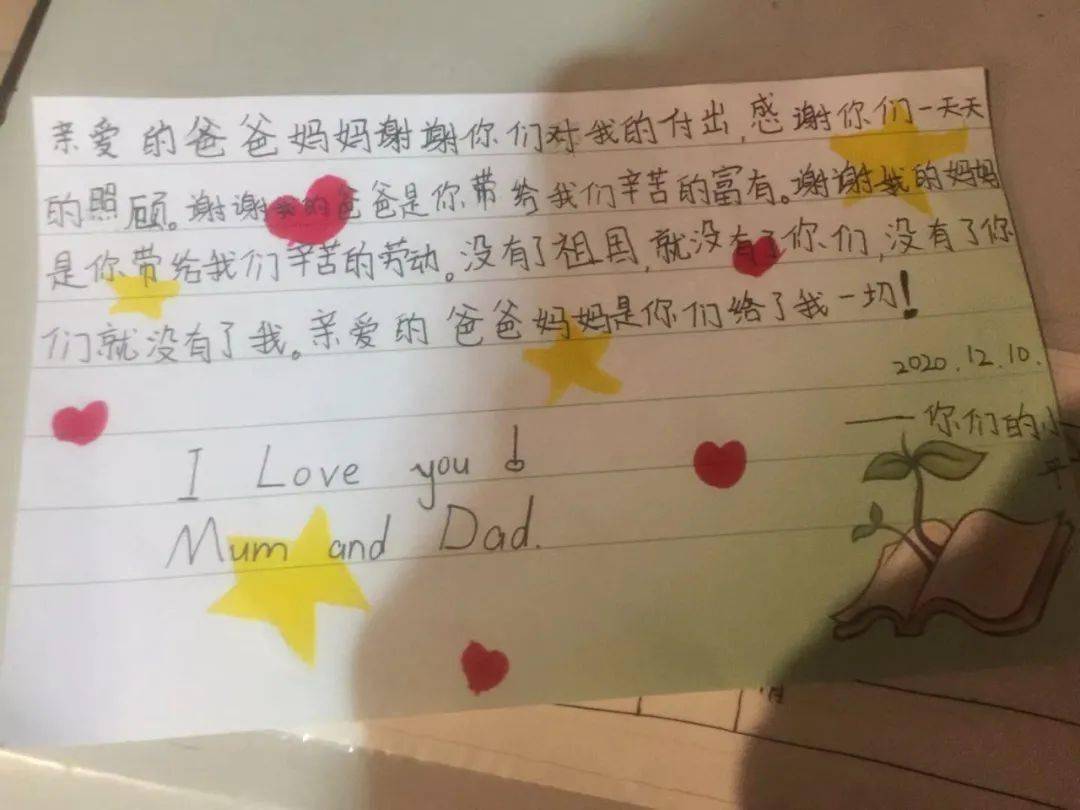 亲爱的爸爸妈妈谢谢你们对我的付出,感谢你们一天天
的照顾。谢谢我的爸爸是你带给我们辛苦的富有。谢谢我的妈妈
是你带给我们辛苦的劳动。没有了祖国,就没有了你们,没有了你
们就没有了我。亲爱的爸爸妈妈是你们给了我一切!
2020.12.10.
——你们的小
I Love you!
Mum and Dad.